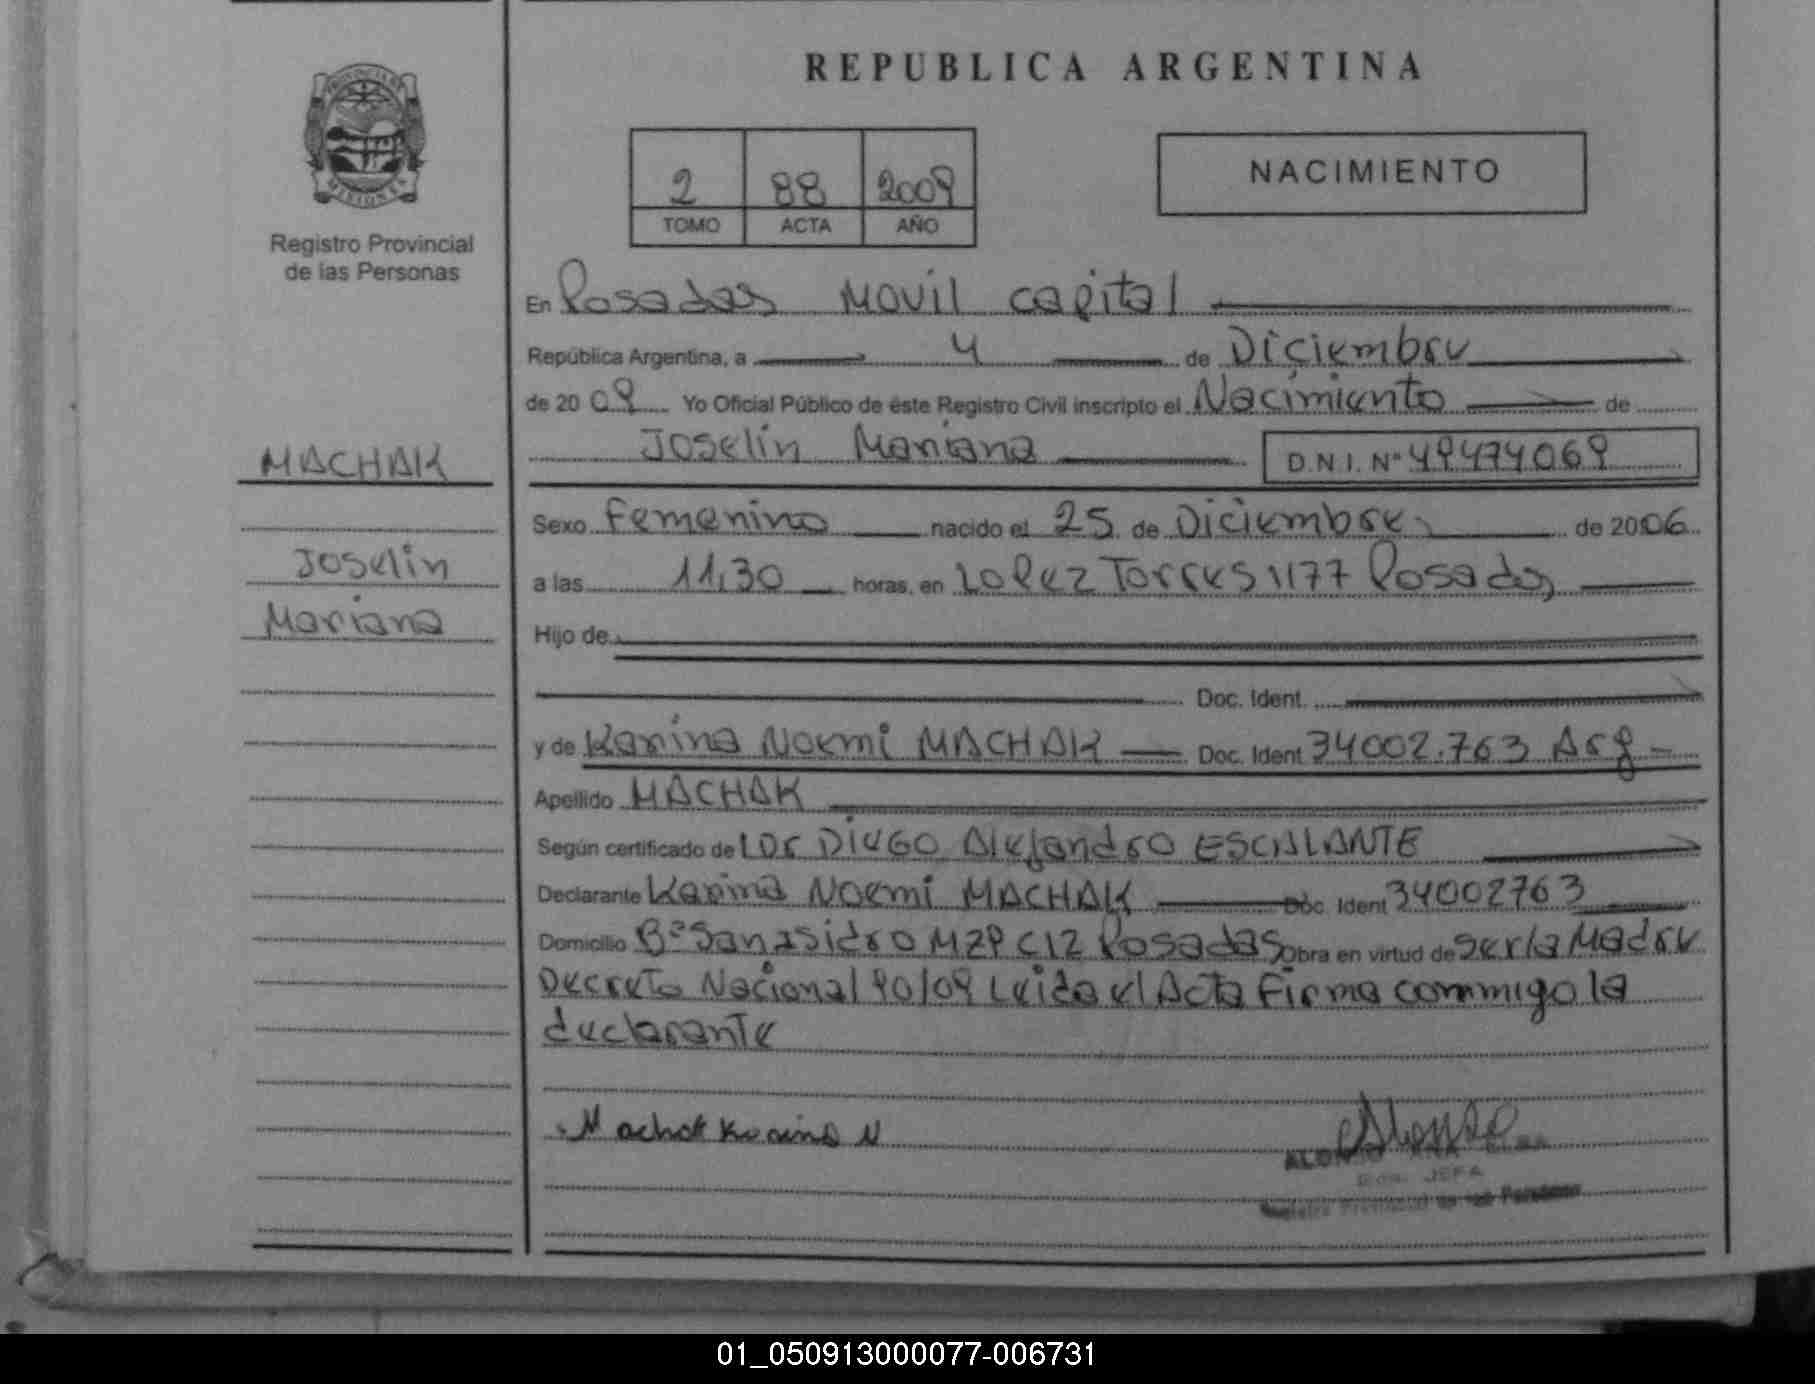 REPUBLICA ARGENTINA
PROVINCIA DE
MISIONES
Registro Provincial
de las Personas
2 88 2009
TOMO ACTA AÑO
NACIMIENTO
En Posadas Movil capital
República Argentina, a 4 de Diciembre
de 20 09 Yo Oficial Público de éste Registro Civil inscripto el Nacimiento de
Joselin Mariana D.N.I. Nº 49474069
MACHAK
Joselin
Mariana
Sexo Femenino nacido el 25 de Diciembre de 2006
a las 11,30 horas, en Lopez Torres 1177 Posadas
Hijo de
Doc. Ident.
y de Karina Noemi MACHAK Doc. Ident 34002.763 Arg
Apellido MACHAK
Según certificado de Diego Alejandro ESCALANTE
Declarante Karina Noemi MACHAK Doc. Ident 34002763
Domicilio Bº San Isidro MZP C12 Posadas Obra en virtud de ser la Madre
Decreto Nacional 90/09 Leida el Acta Firma commigo la
declarante
Machak Karina N
ALONSO
JEFA
Registro Provincial de las Personas
01_050913000077-006731